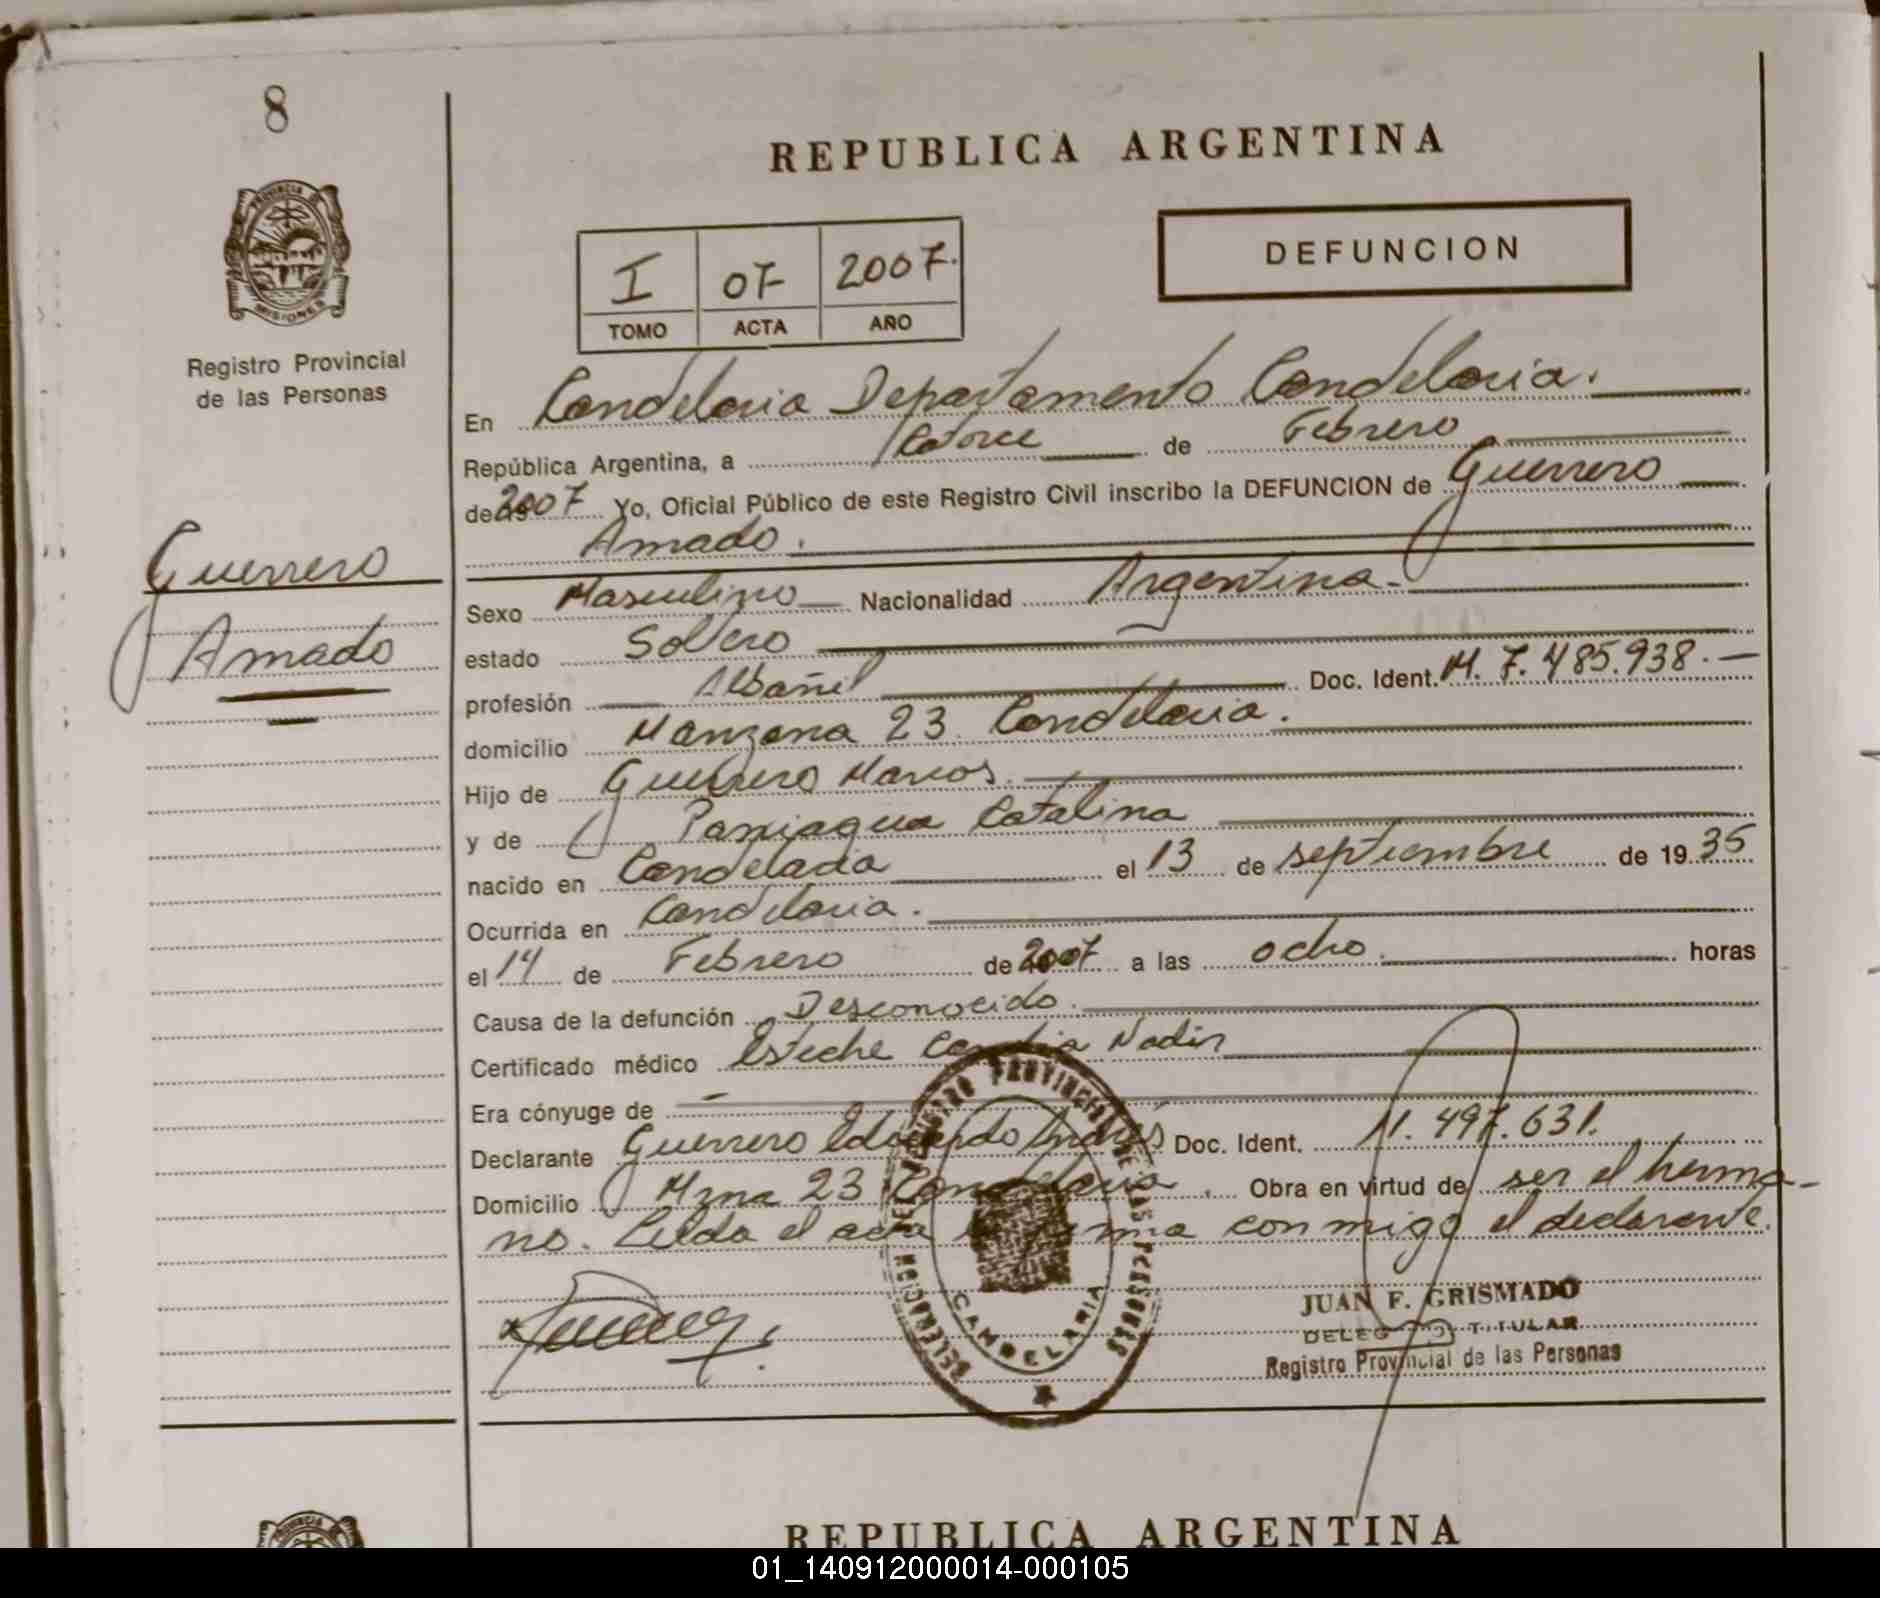 8
PROVINCIA DE
MISIONES
Registro Provincial
de las Personas
Guerrero
Amado
REPUBLICA ARGENTINA
I 07 2007.
TOMO ACTA AÑO
DEFUNCION
En Candelaria Departamento Candelaria.
República Argentina, a Catorce de Febrero
de 2007 Yo, Oficial Público de este Registro Civil inscribo la DEFUNCION de Guerrero
Amado.
Sexo Masculino Nacionalidad Argentina.
estado Soltero
profesión Albañil Doc. Ident. M. 7.485.938.
domicilio Manzana 23 Candelaria.
Hijo de Guerrero Marcos.
y de Paniagua Catalina
nacido en Candelaria el 13 de septiembre de 1935
Ocurrida en Candelaria.
el 14 de Febrero de 2007 a las ocho. horas
Causa de la defunción Desconocido.
Certificado médico Esteche Nadir
Era cónyuge de -
Declarante Guerrero Eduardo Andrés Doc. Ident. 11.497.631.
Domicilio Mzna 23 Candelaria. Obra en virtud de ser el herma-
no. Leída el acta firma conmigo el declarante.
DELEGACION DEL REGISTRO PROVINCIAL DE LAS PERSONAS
CANDELARIA
JUAN F. GRISMADO
DELEGADO TITULAR
Registro Provincial de las Personas
PROVINCIA DE
REPUBLICA ARGENTINA
01_140912000014-000105